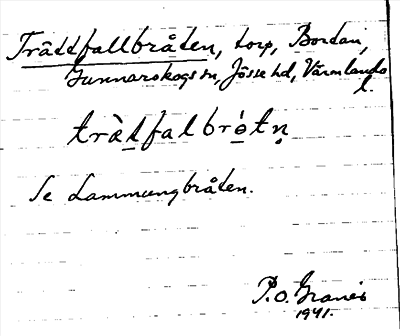 Träddfallbråten, torp, Bordan,
Gunnarskogs sn, Jösse hd, Värmlands
l.
trὰd̲falbró̲tn̥
Se Lammungbråten.
P.O. Granér
1941.